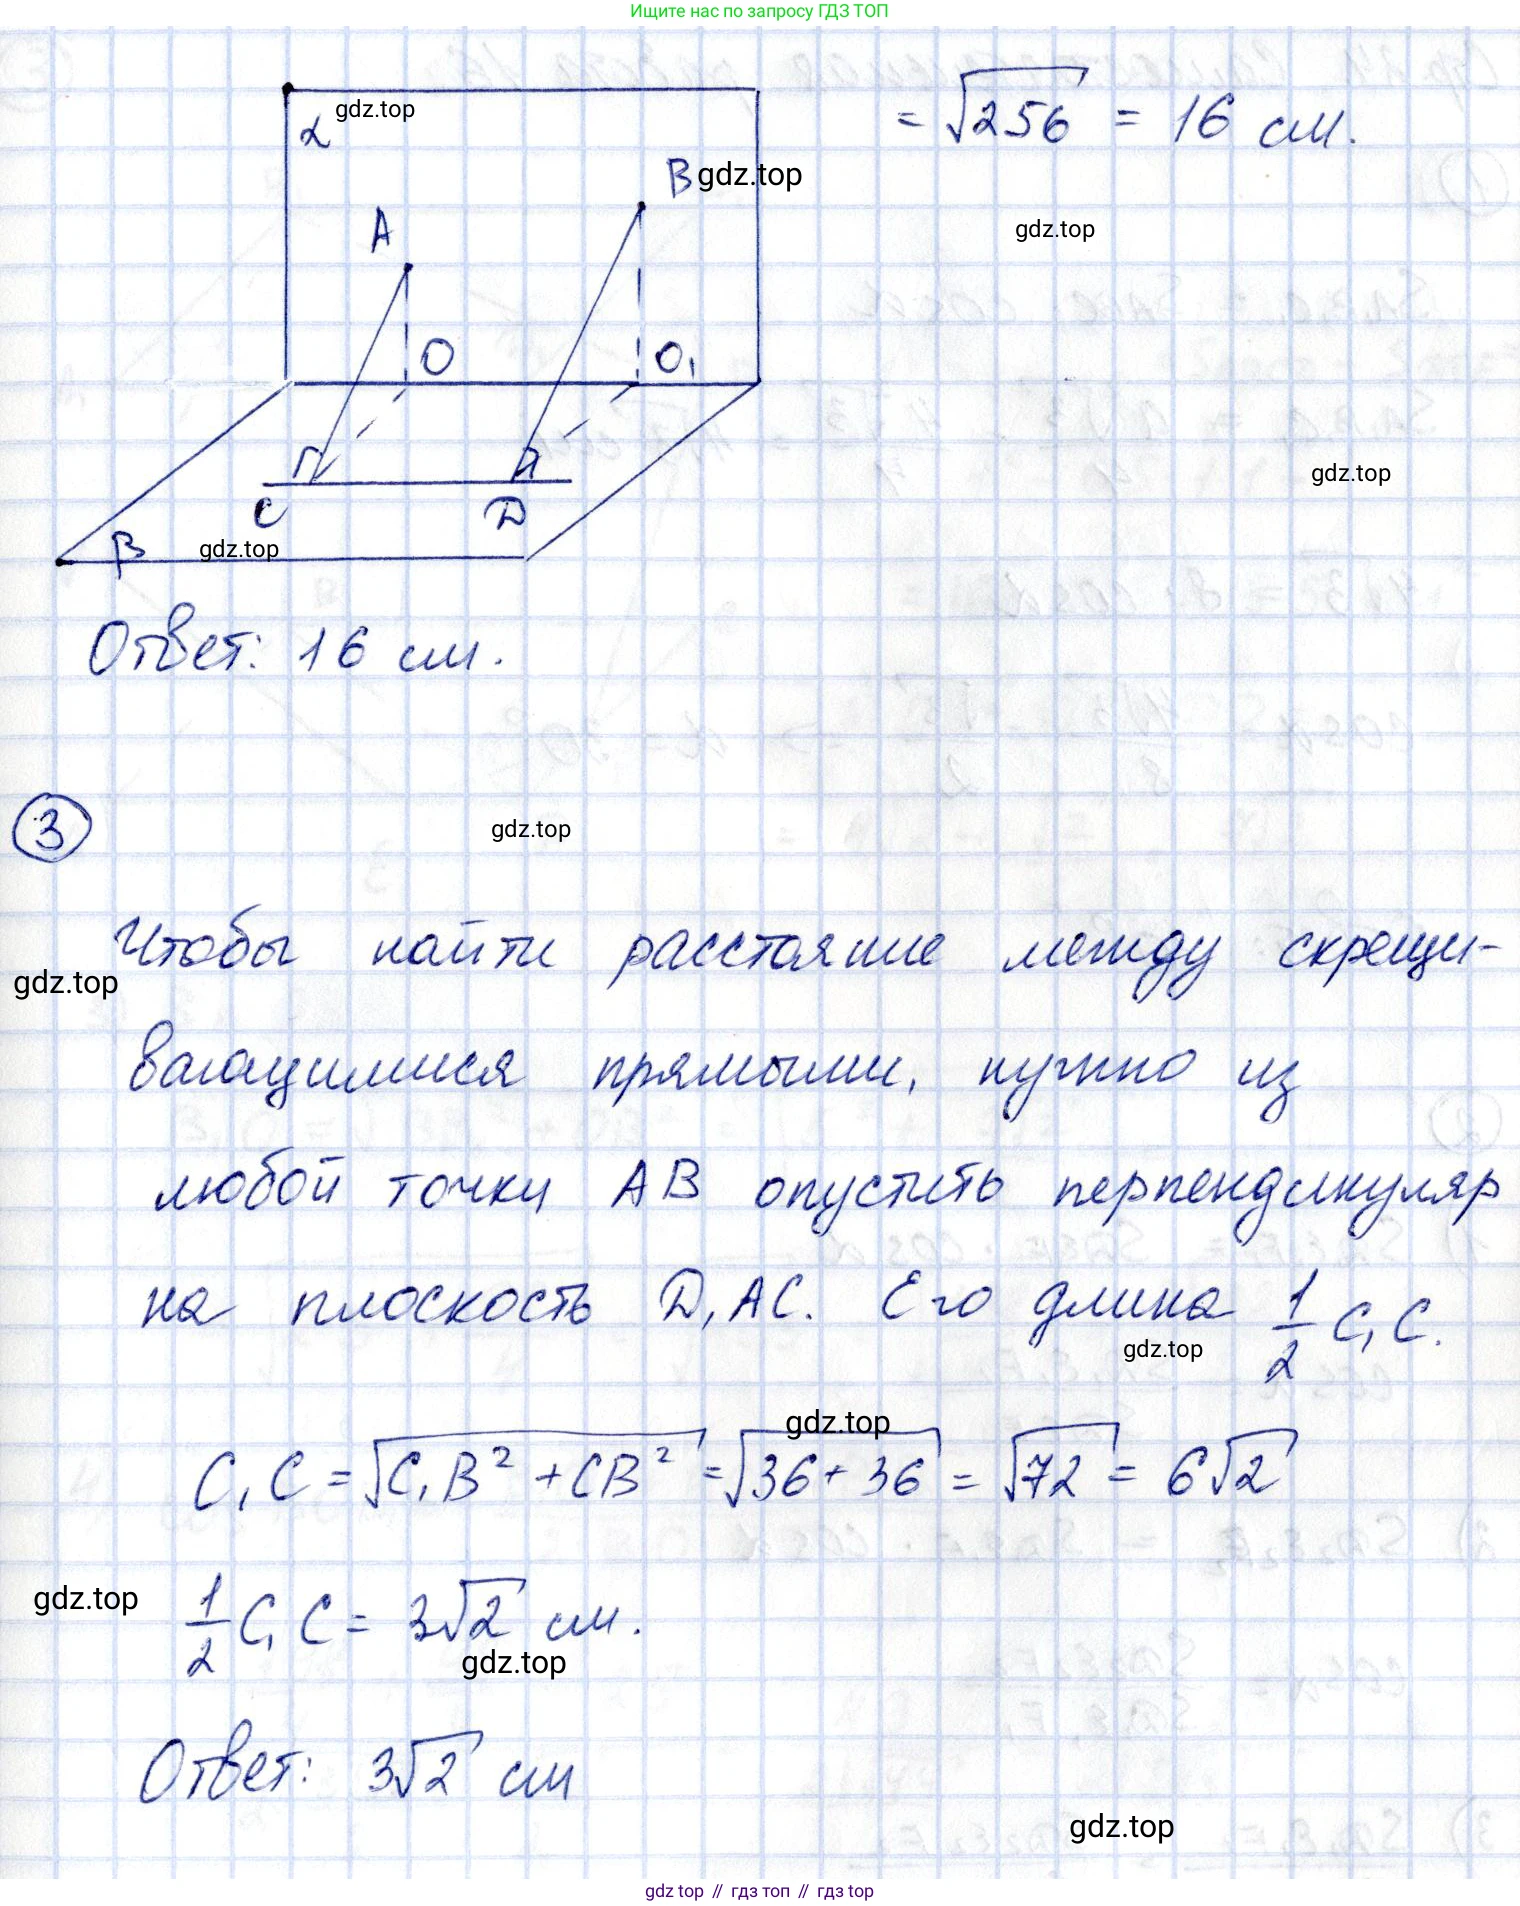 Ищите нас по запросу ГДЗ ТОП
= √256 = 16 см.
α
gdz.top
B
gdz.top
A
gdz.top
O
O₁
gdz.top
C
D
β
gdz.top
Ответ: 16 см.
3
gdz.top
Чтобы найти расстояние между скрещи-
gdz.top
вающимися прямыми, нужно из
любой точки AB опустить перпендикуляр
на плоскость D₁AC. Его длина 1/2 C₁C.
gdz.top
gdz.top
C₁C = √C₁B² + CB² = √36 + 36 = √72 = 6√2
gdz.top
1/2 C₁C = 3√2 см.
gdz.top
Ответ: 3√2 см
gdz.top
gdz top // гдз топ // гдз top